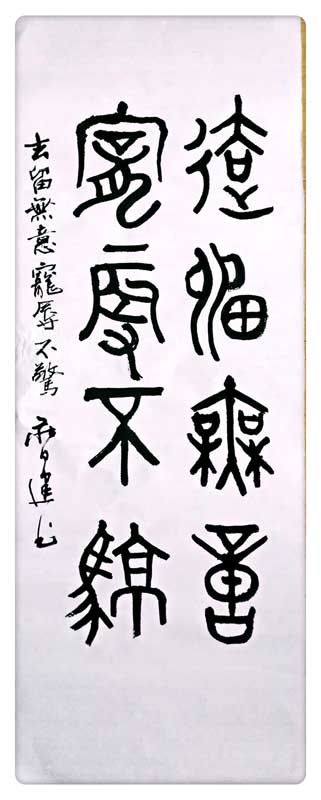 去留無意
寵辱不驚
去留無意寵辱不驚 建书